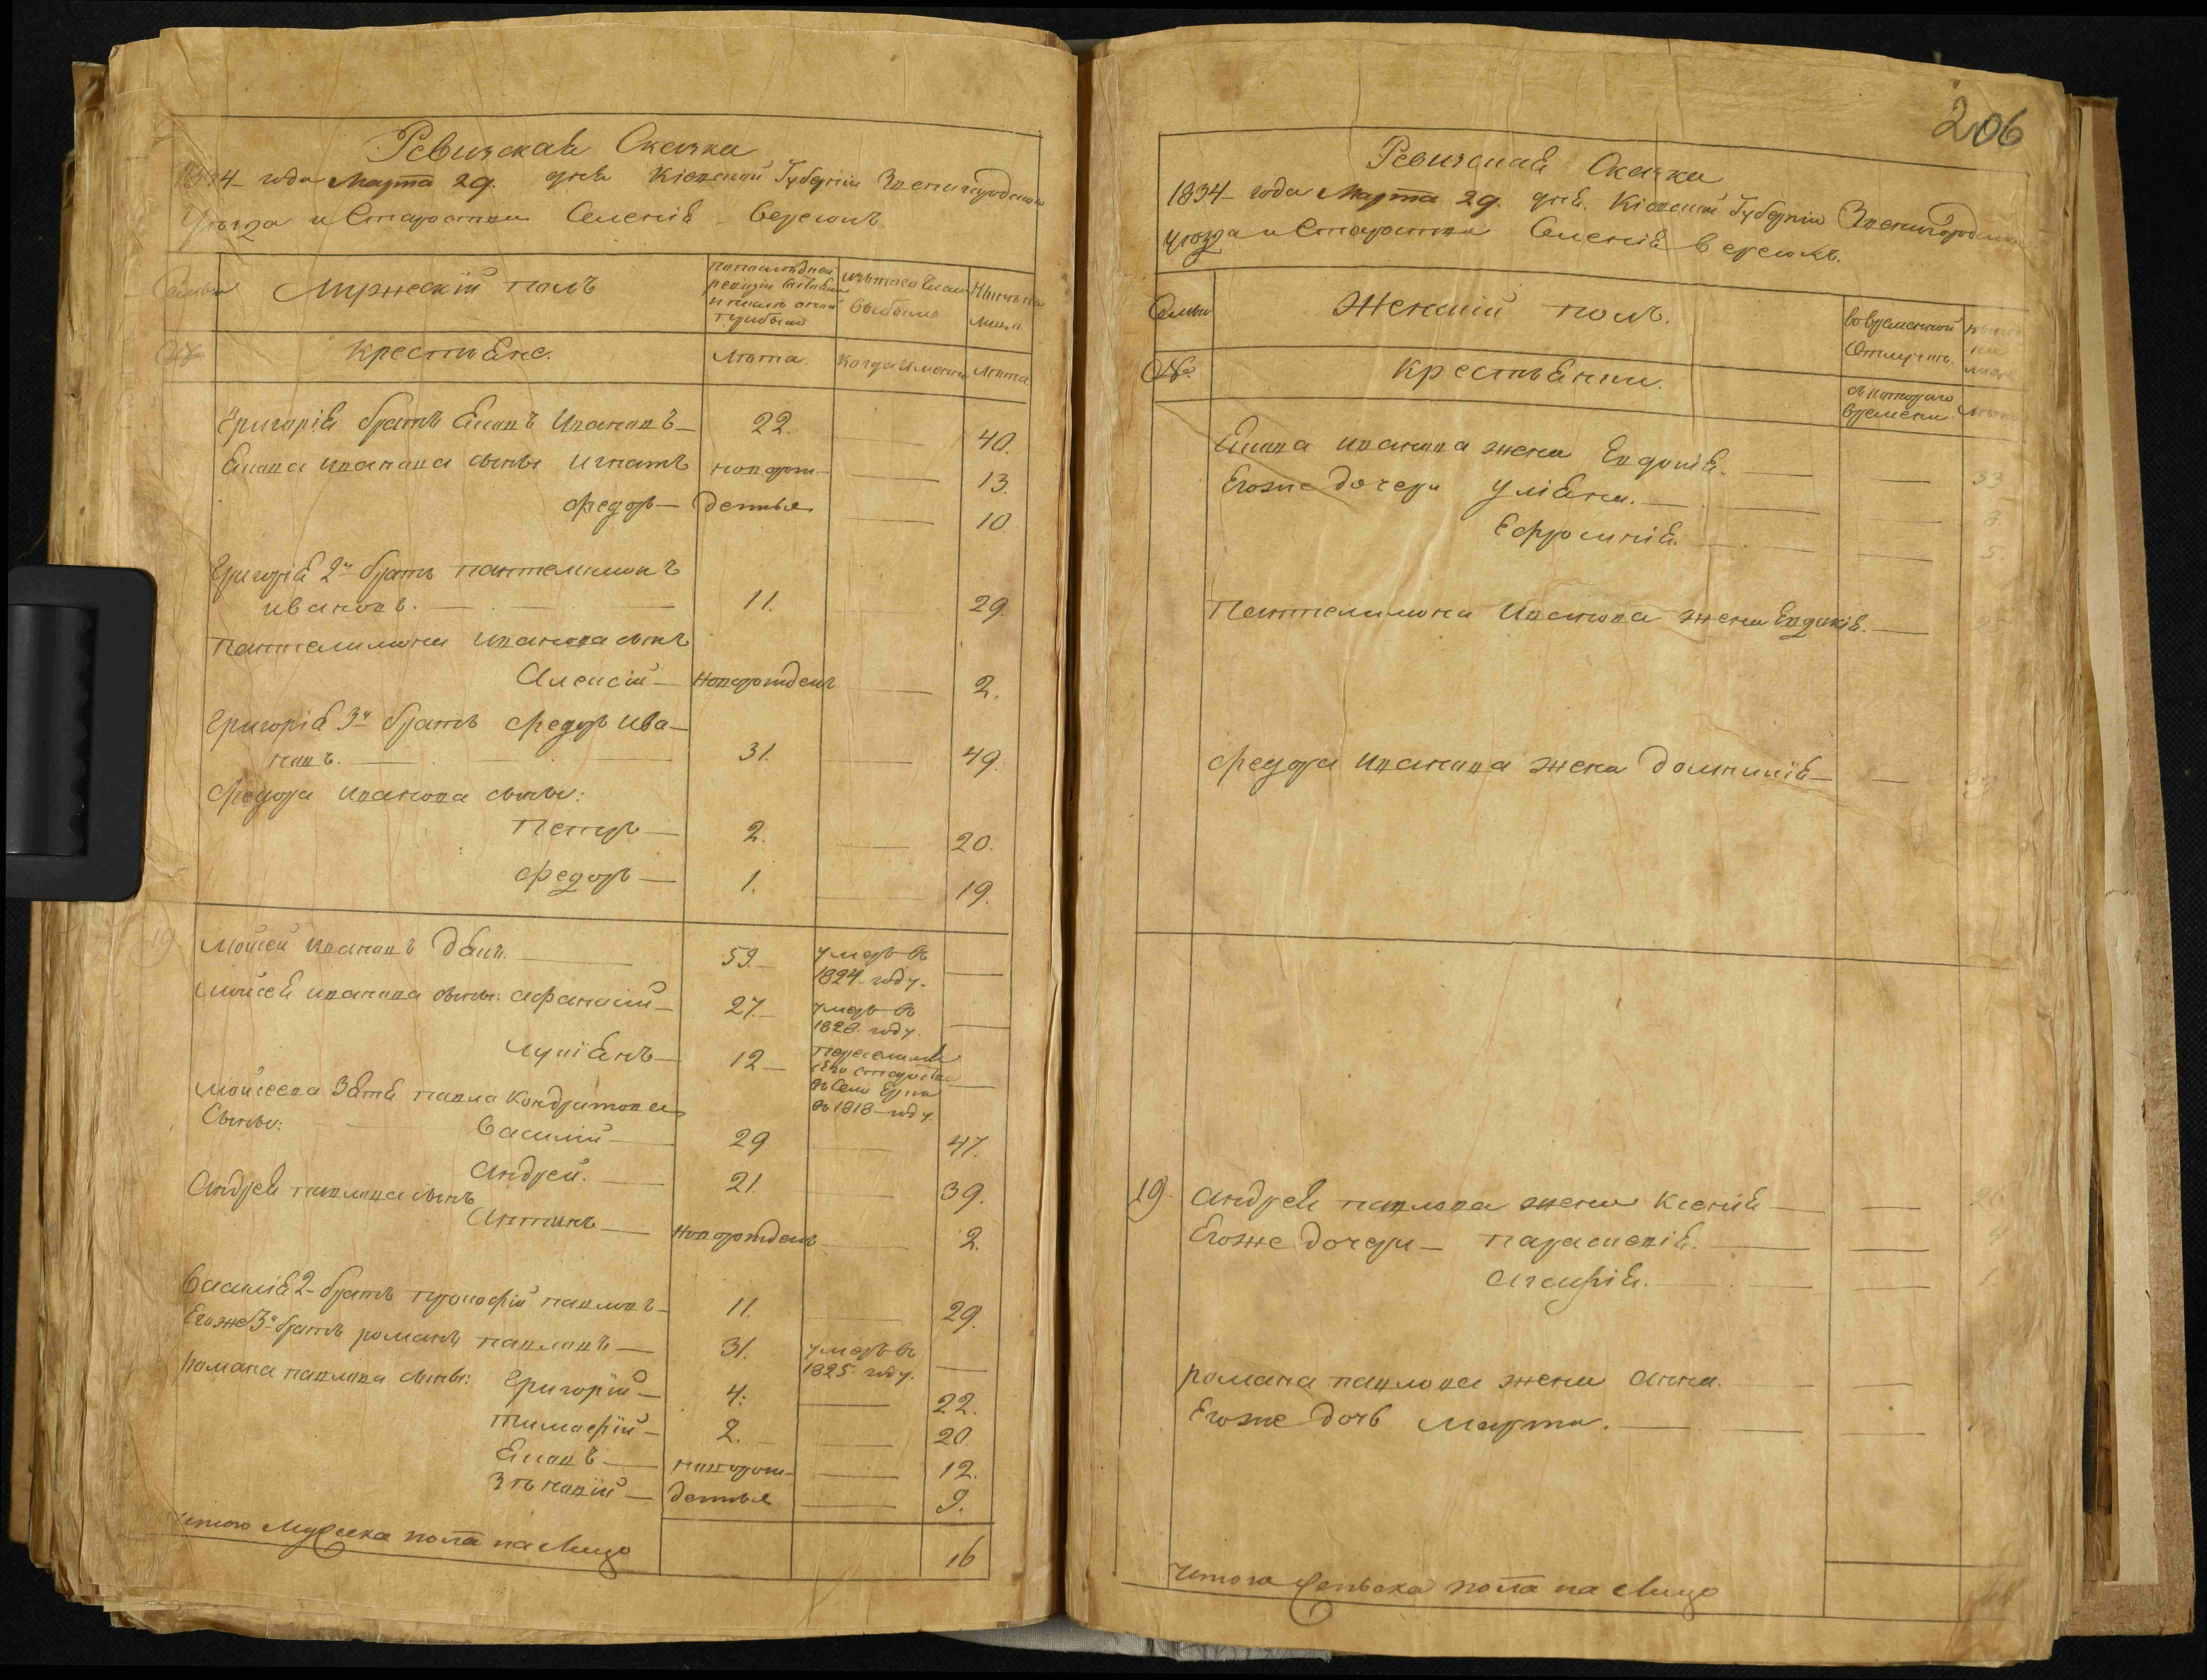 Ревизская Сказка
1834 года Марта 29. дня Кіевской Губерніи Звенигородскаго
уѣзда и Староства Селенія Верещакъ
Семьи
Мужескій полъ
По последней ревизіи состояло и послѣ оной прибыло
Изъ того числа выбыло
Нынѣ на лицо
№
Крестьяне.
Лѣта.
Когда именно
Лѣта
Григорія братъ Яковъ Ивановъ — 22. — 40.
Якова Иванова сыны Игнатъ новорож- — 13.
Федоръ — денные — 10.
Григорія 2й братъ Пантелимонъ
Ивановъ. — 11. — 29.
Пантелимона Иванова сынъ
Алексій — новорожденъ — 2.
Григорія 3й братъ Федоръ Ива-
новъ. — 31. — 49.
Федора Иванова сыны:
Петръ — 2. — 20.
Федоръ — 1. — 19.
19 Моисей Ивановъ — 59. — умеръ въ
1824. году. —
Моисея Иванова сыны: Афанасій — 27. — умеръ въ
1828. году. —
Лукіянъ — 12 — переселился
въ село
въ 1818 году. —
Моисеева Зятя Павла Кондратова
Сыны: Василій — 29 — 47.
Андрей. — 21. — 39.
Андрея Павлова сынъ
Антинъ — новорожденъ — 2.
Василія 2 братъ Прокофій Павловъ — 11. — 29.
Егоже 3й братъ Романъ Павловъ — 31. умеръ въ
1825. году. —
Романа Павлова сыны: Григорій — 4. — 22.
Тимофій — 2. — 20.
Яковъ — новорож- — 12.
Зѣновій — денные — 9.
Итого Мужеска пола на лицо 16
206
Ревизская Сказка
1834 года Марта 29. дня. Кіевской Губерніи Звенигородскаго
уѣзда и Староства Селенія Верещакъ.
Семьи
Женскій полъ.
Во временной Отлучкѣ.
Нынѣ на лицо
№.
Крестьянки.
Съ котораго времени
Лѣта
Якова Иванова жена Евдокія. — 33
Егоже дочери Уліяна. — 8
Ефросинія. — 5.
Пантелимона Иванова жена Евдокія. — 25
Федора Иванова жена Домникія — 39
19. Андрея Павлова жена Ксенія — 26
Егоже дочери — Параскевія. — 4
Агафія. — 1.
Романа Павлова жена Анна. —
Егоже дочь Марта. —
Итого Женска пола на лицо